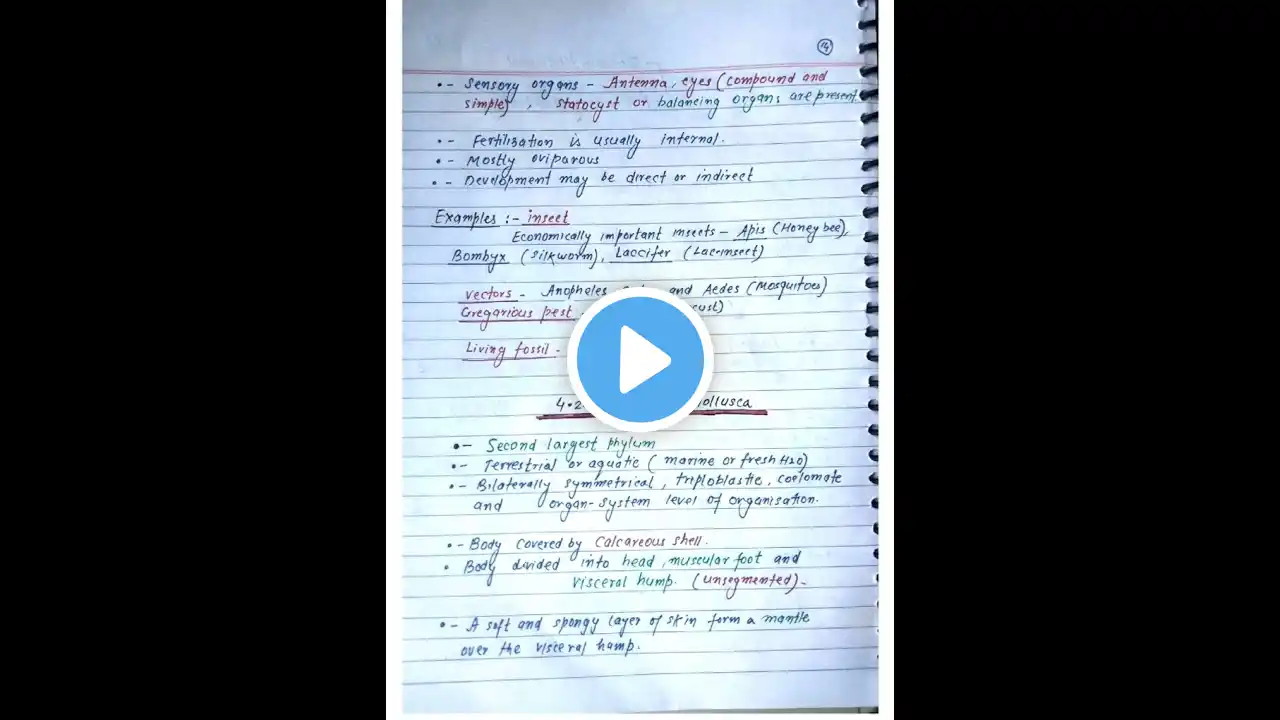 14
•- Sensory organs - Antenna, eyes (compound and
simple), statocyst or balancing organs are present.
•- Fertilization is usually internal.
•- Mostly oviparous
•- Development may be direct or indirect
Examples :- insect
Economically important insects - Apis (Honey bee),
Bombyx (Silkworm), Laccifer (Lac-insect)
Vectors - Anopheles and Aedes (Mosquitoes)
Gregarious pest
Living fossil -
•- Second largest phylum
•- Terrestrial or aquatic (marine or fresh H2O)
•- Bilaterally symmetrical, triploblastic, coelomate
and organ-system level of organisation.
•- Body covered by calcareous shell.
• Body divided into head, muscular foot and
visceral hump. (unsegmented).
•- A soft and spongy layer of skin form a mantle
over the visceral hump.